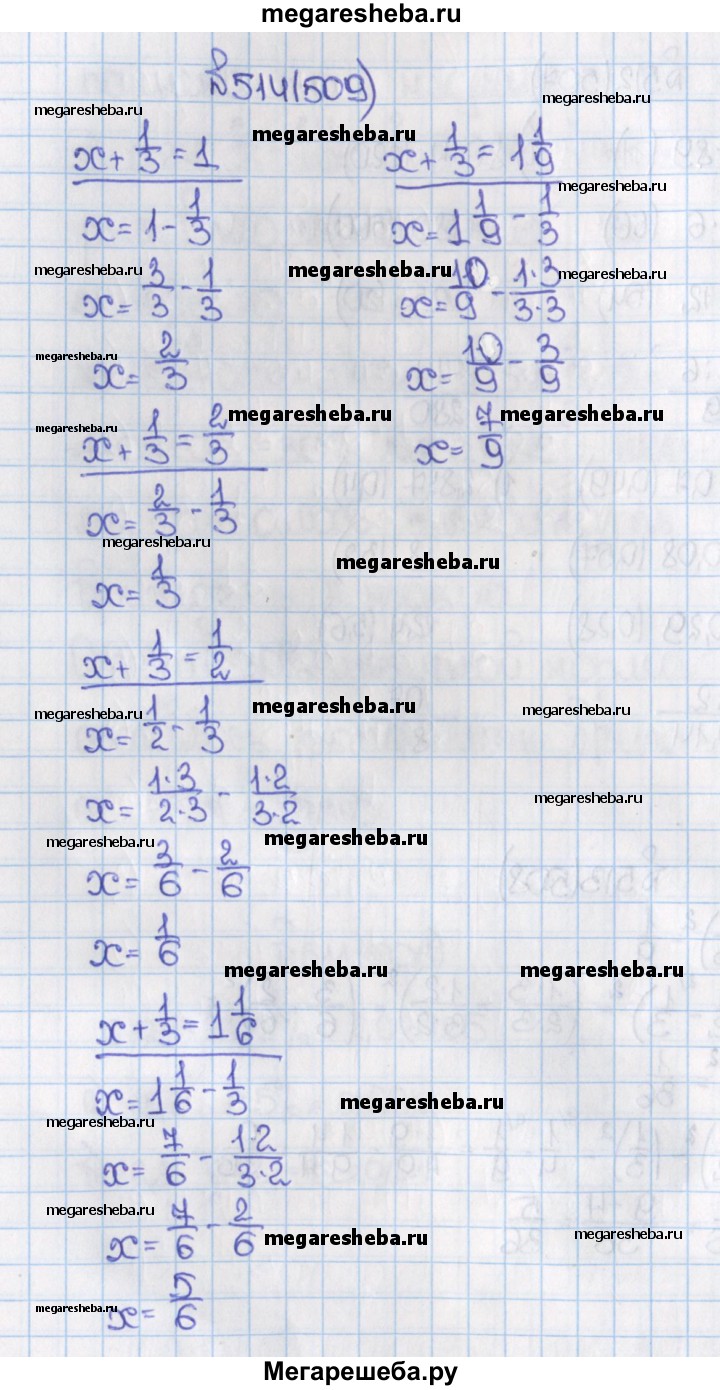 megaresheba.ru
№514(509)
megaresheba.ru
megaresheba.ru
megaresheba.ru
x + 1/3 = 1
x = 1 - 1/3
megaresheba.ru
x = 3/3 - 1/3
x = 2/3
megaresheba.ru
x + 1/3 = 1 1/9
megaresheba.ru
x = 1 1/9 - 1/3
megaresheba.ru
megaresheba.ru
x = 10/9 - 1·3/3·3
x = 10/9 - 3/9
x = 7/9
megaresheba.ru
megaresheba.ru
megaresheba.ru
x + 1/3 = 2/3
x = 2/3 - 1/3
megaresheba.ru
megaresheba.ru
x = 1/3
x + 1/3 = 1/2
megaresheba.ru
megaresheba.ru
megaresheba.ru
x = 1/2 - 1/3
x = 1·3/2·3 - 1·2/3·2
megaresheba.ru
megaresheba.ru
megaresheba.ru
x = 3/6 - 2/6
x = 1/6
megaresheba.ru
megaresheba.ru
x + 1/3 = 1 1/6
x = 1 1/6 - 1/3
megaresheba.ru
megaresheba.ru
x = 7/6 - 1·2/3·2
megaresheba.ru
x = 7/6 - 2/6
megaresheba.ru
megaresheba.ru
x = 5/6
Мегарешеба.ру